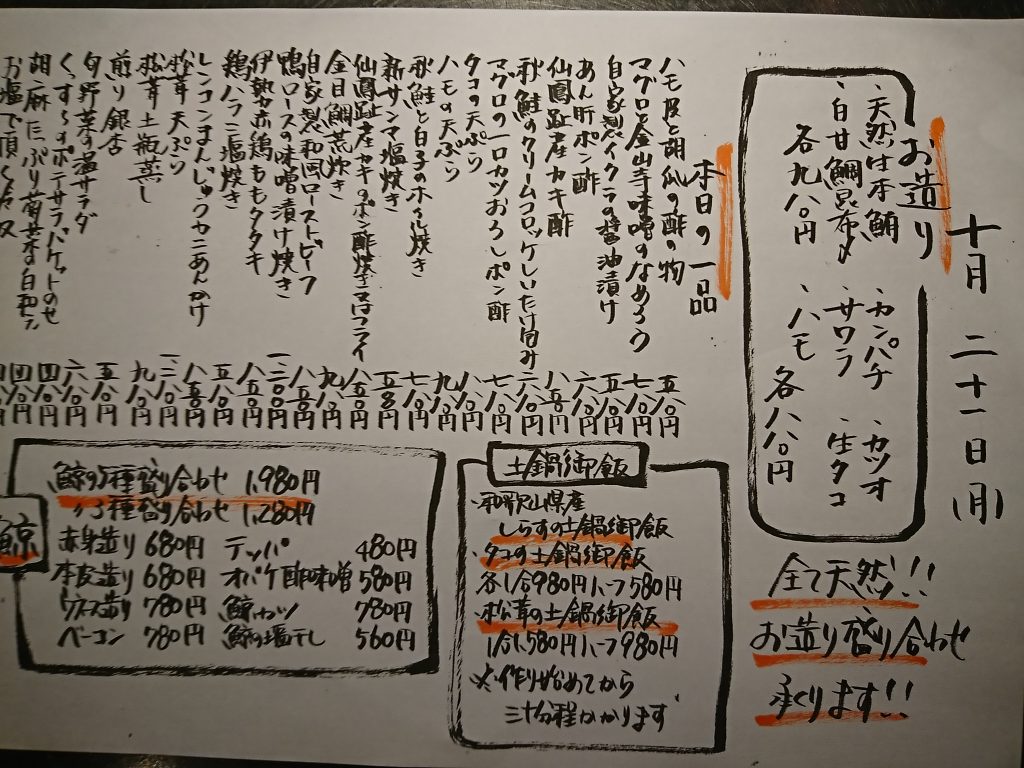 十月 二十一日(月)
お造り
・天然生本鮪 ・カンパチ ・カツオ
・白甘鯛昆布〆 ・サワラ ・生タコ
各九八〇円 ・ハモ 各八八〇円
全て天然!!
お造り盛り合わせ
承ります!!
本日の一品
ハモ皮と胡瓜の酢の物 五八〇円
マグロと金山寺味噌のなめろう 七八〇円
自家製イクラの醤油漬け 五八〇円
あん肝ポン酢 六八〇円
仙鳳趾産カキ酢 八五〇円
秋鮭のクリームコロッケしいたけ包み
マグロの一口カツおろしポン酢 七八〇円
タコの天ぷら 八八〇円
ハモの天ぷら 九八〇円
秋鮭と白子のホイル焼き 七八〇円
新サンマ塩焼き
仙鳳趾産カキのポン酢焼き又はフライ 八五〇円
金目鯛煮炊き 九八〇円
自家製和風ローストビーフ
鴨ロースの味噌漬け焼き
伊勢赤鶏ももタタキ 八五〇円
鶏ハラミ塩焼き 五八〇円
レンコンまんじゅうカニあんかけ
松茸天ぷら
松茸土瓶蒸し 九八〇円
煎り銀杏 五八〇円
旬野菜の温サラダ 六八〇円
くんすらのポテサラバケットのせ 四八〇円
胡麻たっぷり 四八〇円
土鍋御飯
・和歌山県産
しらすの土鍋御飯
・タコの土鍋御飯
各1合980円ハーフ580円
・松茸の土鍋御飯
1合1,580円ハーフ980円
※作り始めてから
三十分程かかります
鯨
鯨の5種盛り合わせ 1,980円
〃3種盛り合わせ 1,280円
赤身造り 680円 テッパ 480円
本皮造り 680円 オバケ酢味噌 580円
780円 鯨カツ 780円
ベーコン 780円 鯨の塩干し 560円